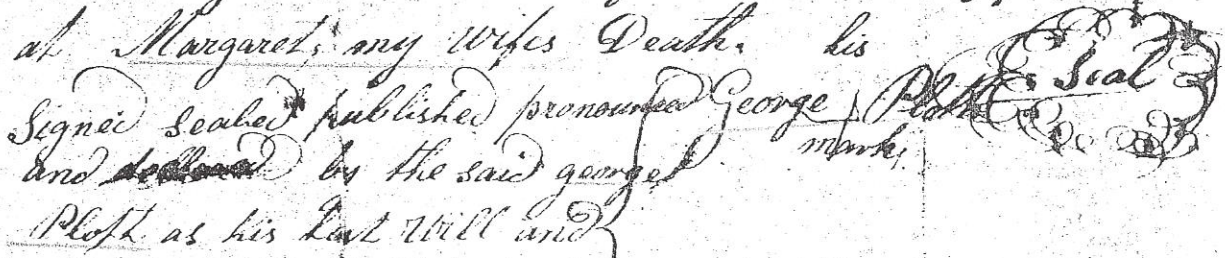 at Margarets my wifes Death. his
Signed sealed published pronounced George Plott Seal
and by the said george mark,
Plott as his Last Will and